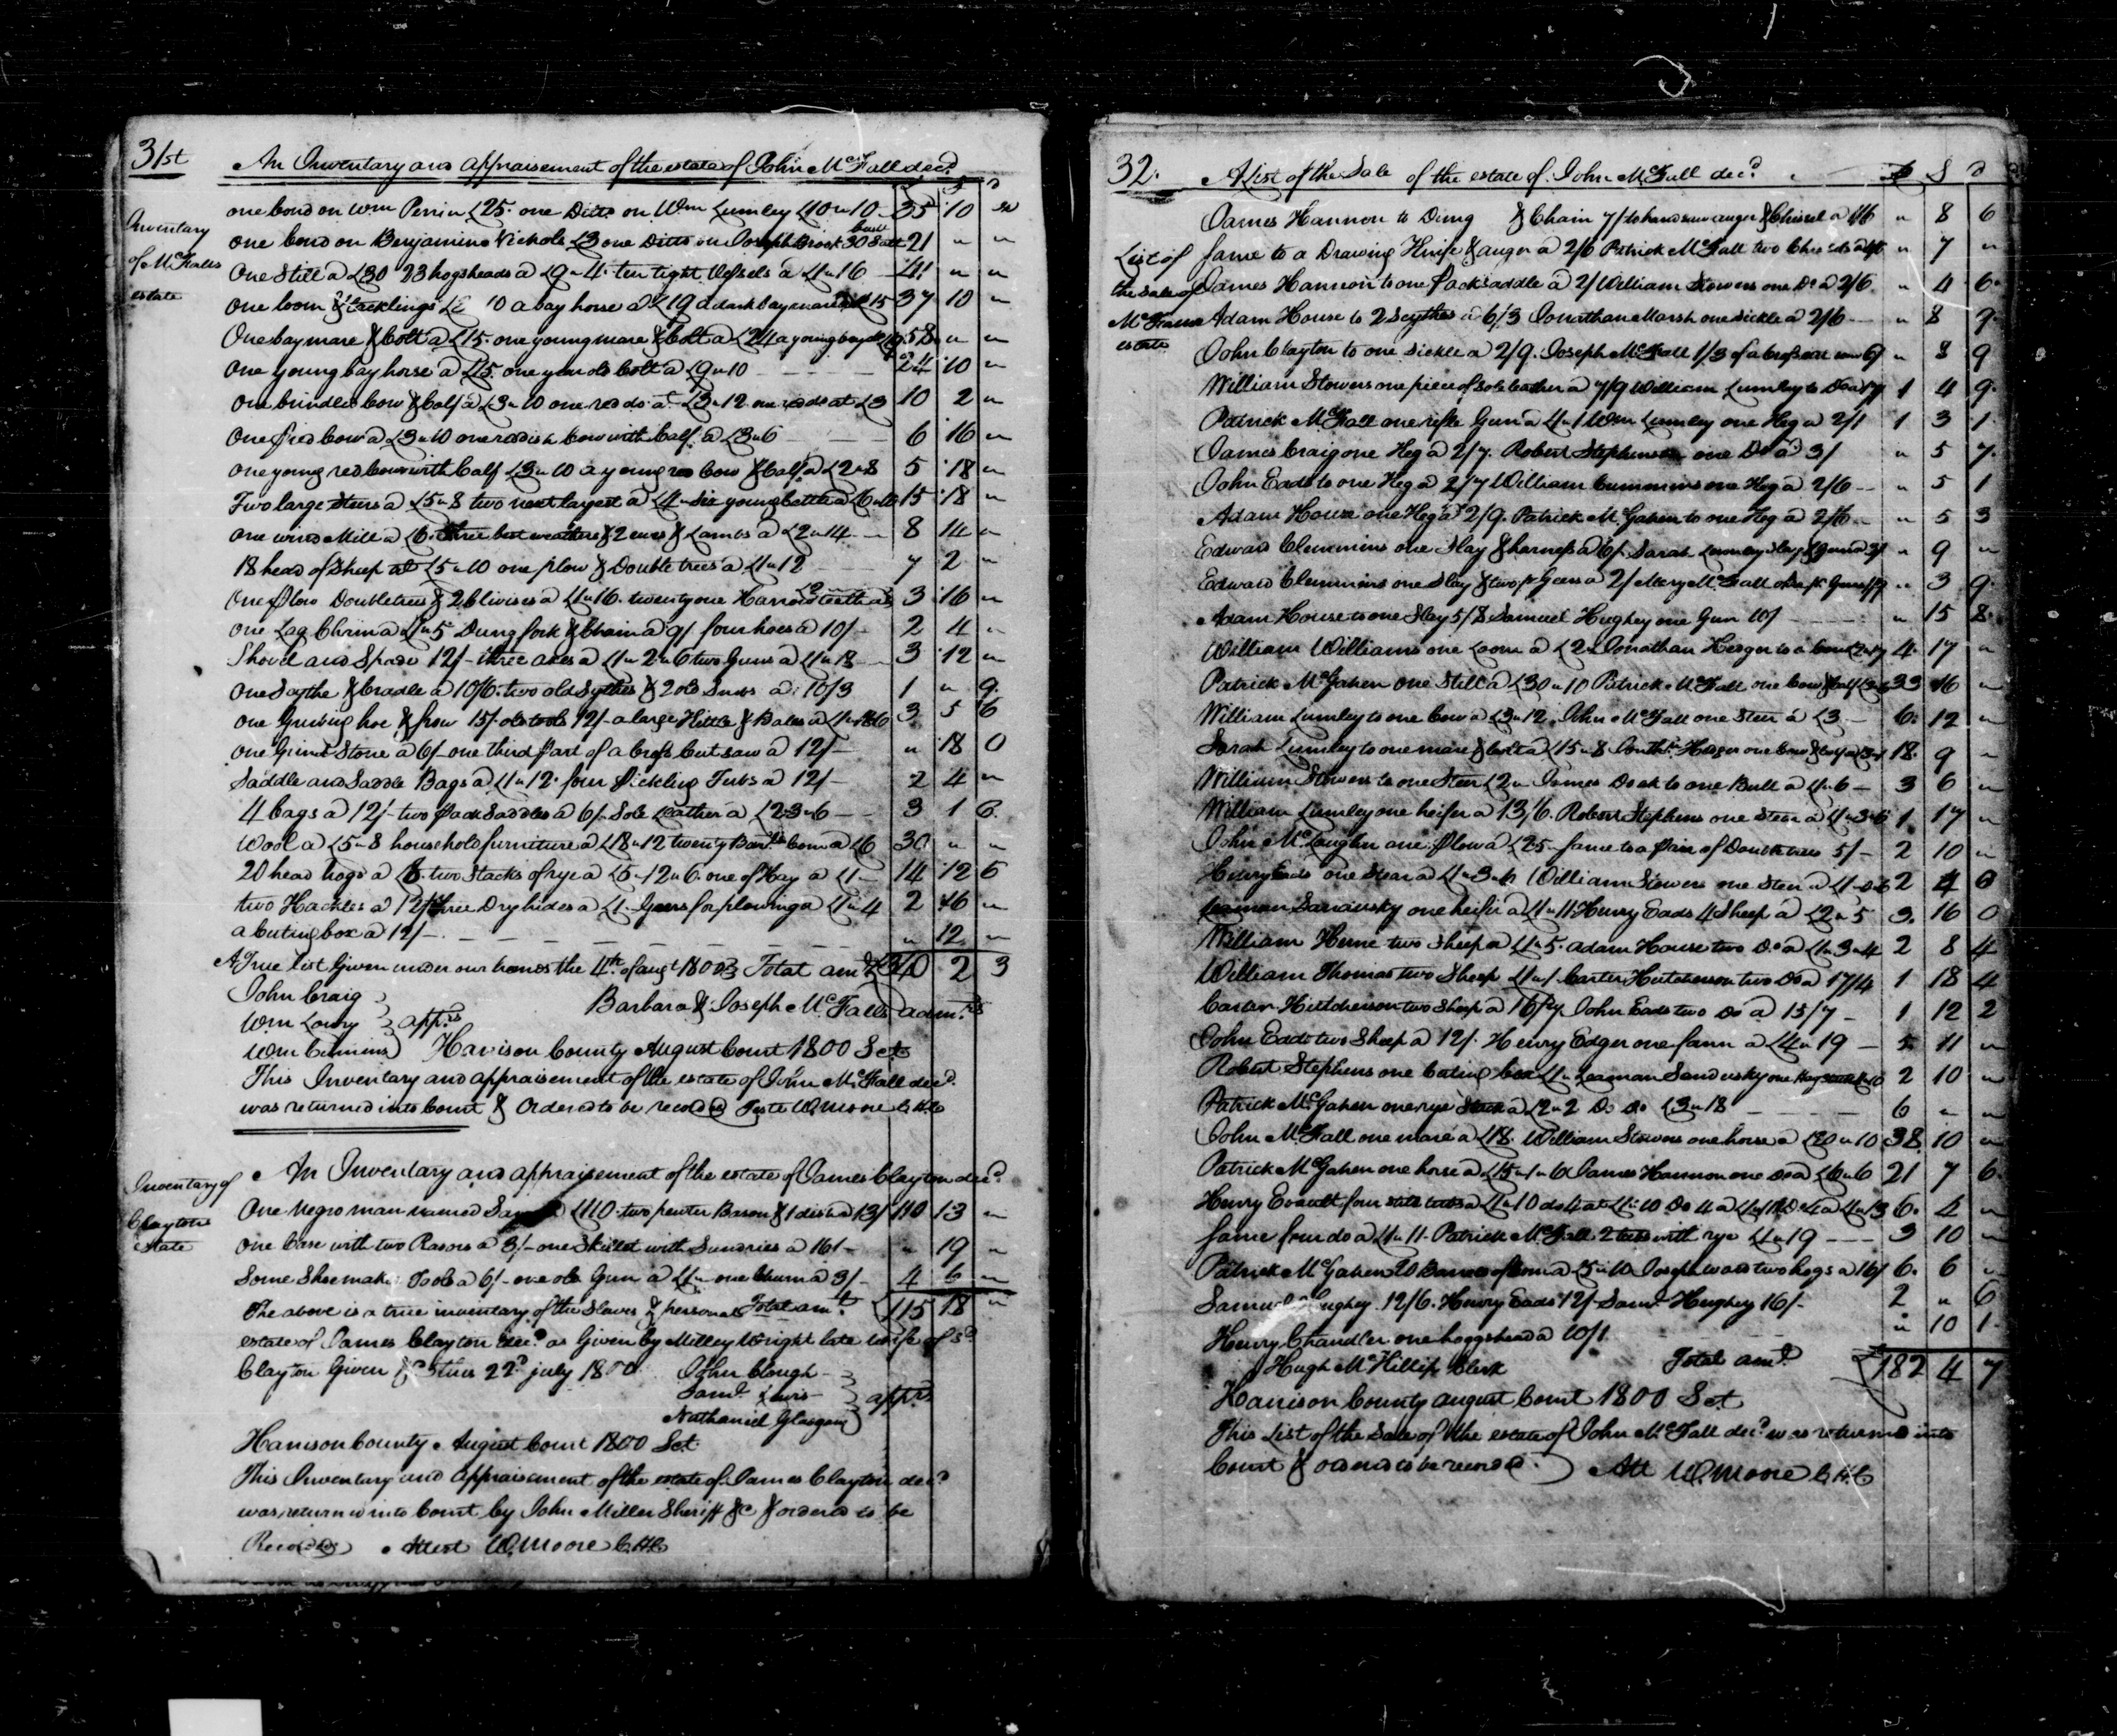 31st
An Inventary and appraisement of the estate of John McFall decd.
Inventary
of McFalls
estate
one bond on Wm Perrin £25. one Ditto on Wm Lumley £10"10 35 10 "
one bond on Benjamine Nickols £3 one Ditto on Joseph Brock 21 " "
One Still a £30 23 hogsheads a £9"4. ten tight Vessels a £1"16 41 " "
One loom & tacklings 10 a bay horse a £19 a dark bay mare £15 37 10 "
One bay mare & Colt a £15. one young mare & Colt a £24 a young bay 58 " "
One young bay horse a £15 one year old Colt a £9"10 24 10 "
One brindled Cow & Calf a £3"10 one red do. at £3"12 one red do at £3 10 2 "
One pied Cow a £3"10 one redish Cow with Calf a £3"6 6 16 "
one young red Cow with Calf £3"10 a young red Cow & Calf a £2"8 5 18 "
Two large Steers a £5"8 two next largest a £4"six young Cattle a £6"10 15 18 "
one wind Mill a £6. three best weathers & 2 ewes & Lambs a £2"14 8 14 "
18 head of Sheep at £5"10 one plow & Double trees a £1"12 7 2 "
One plow Doubletrees & 2 Clivises a £1"16. twenty one Harrow teeth a £2 3 16 "
one Log Chain a £1"5 Dung fork & Chain a 9/ four hoes a 10/ 2 4 "
Shovel and Spade 12/- three axes a £1"2"6 two Guns a £1"18 3 12 "
One Sythe & Cradle a 10/6. two old Sythes & 2 old Sneds a 10/3 1 " 9
one Grubing hoe & frow 15/. old tools 12/- a large Kittle & Bales a £1"18"6 3 5 6
one Grind Stone a 6/- one third part of a Cross Cut saw a 12/- " 18 0
Saddle and Saddle Bags a £1"12. four Pickling Tubs a 12/- 2 4 "
4 bags a 12/- two pack Saddles a 6/- Sole Leather a £2"3"6 3 1 6
Wool a £5"8 household furniture a £18"12 twenty Barrels Corn a £6 30 " "
20 head hogs a £8. two Stacks of rye a £5"12"6 one of Hay a £1 14 12 6
two Hackles a 12/ three Dry hides a £1. Gears for plowing a £1"4 2 16 "
a Cuting box a 12/- " 12 "
A True list Given under our hands the 4th. of augt 1800 Total amt £340 2 3
John Craig
Wm Lowry } apprs
Barbara & Joseph McFalls admrs
Wm Cumins
Harrison County August Court 1800 Sct
This Inventary and appraisement of the estate of John McFall decd.
was returned into Court & Ordered to be recorded Teste W. Moore C.H.C
Inventary of
Claytons
estate
An Inventary and appraisement of the estate of James Clayton decd
One Negro man named £110. two pewter Bason & 1 dish a 13/ 110 13 "
One Case with two Rasors a 3/- one Skillet with Sundries a 16/- " 19 "
Some Shoemaker Tools a 6/- one old Gun a £4"- one Churn a 3/- 4 6 "
The above is a true inventary of the Slaves & personal Total amt. £115 18 "
estate of James Clayton decd as Given by Milley Wright late wife of sd.
Clayton Given 22d july 1800 John Clough
Saml. Lewis } apprs
Nathaniel Glasgow
Harrison County August Court 1800 Sct
This Inventary and appraisement of the estate of James Clayton decd
was returned into Court by John Miller Sheriff &c & ordered to be
Recorded Attest W. Moore C.H.C
32.
A List of the Sale of the estate of John McFall decd. £ S d
List of
the Sale of
McFalls
estate
James Hannon to Dung & Chain 7/ to handsaw auger & Chissel a 1/6 " 8 6
Same to a Drawing Knife & auger a 2/6 Patrick McFall two " 7 "
James Hannon to one Packsaddle a 2/ William Stowers one Do a 2/6 " 4 6
Adam House to 2 Scythes a 6/3 Jonathan Marsh one Sickle a 2/6 " 8 9
John Clayton to one Sickle a 2/9. Joseph McFall 1/3 of a Cross Cut saw 6/ " 8 9
William Stowers one piece of Sole Leather a 7/9 William Lumley to Do a 17/ 1 4 9
Patrick McFall one rifle Gun a £1"1 Wm Lumley one Keg a 2/1 1 3 1
James Craig one Keg a 2/7. Robert Stephenson one Do a 3/ " 5 7
John Eads to one Keg a 2/7 William Cummins one Keg a 2/6 " 5 1
Adam House one Keg a 2/9. Patrick McGahen to one Keg a 2/6 " 5 3
Edward Clemmins one Slay & harness a 6/. Sarah Lumley Slay & Gears a 3/ " 9 "
Edward Clemmins one Slay & two pr Gears a 2/ Mary McFall one pr Gears 1/9 " 3 9
Adam House to one Slay 5/8 Samuel Hughey one Gun 10/ " 15 8
William Williams one Loom a £2" Jonathan Hedger to a Cow £2"17 4 17 "
Patrick McGahen one Still a £30"10 Patrick McFall one Cow & Calf 33 16 "
William Lumley to one Cow a £3"12 John McFall one Steer a £3 6 12 "
Sarah Lumley to one mare & Colt a £15"8 Jonth. Hedger one Cow & Calf a £3"1 18 9 "
William Stowers to one Steer £2" James Doak to one Bull a £1"6 3 6 "
William Lumley one heifer a 13/6. Robert Stephens one Steer a £1"3"6 1 17 "
John McLaughn one Plow a £2"5 Same to a Pair of Double trees 5/- 2 10 "
Henry Eads one Steer a William Stowers one Steer a 2 4 6
Leaman Sandusky one heifer a £1"11 Henry Eads 4 Sheep a £2"5 3 16 0
William Herne two Sheep a £1"5. adam House two Do a £1"3"4 2 8 4
William Thomas two Sheep £1"1 Carter Hutcherson two Do a 17/4 1 18 4
Carter Hutcherson two Sheep a 16/7. John Eads two Do a 15/7 1 12 2
John Eads two Sheep a 12/. Henry Edger one fann a £4"19 5 11 "
Robert Stephens one Cuting box £1" Leaman Sandusky one Hay 2 10 "
Patrick McGahen one rye Stack a £2"2 Do Do £3"18 6 " "
John McFall one mare a £18. William Stowers one horse a £20"10 38 10 "
Patrick McGahen one horse a £15"1"6 James Hannon one Do a £6"6 21 7 6
Henry Evault four a £1"10 do 4 at £1"10 Do 4 a Do 4 a £1"13 6 4 "
Same four do a £1"11. Patrick McFall 2 tubs with rye £1"19 3 10 "
Patrick McGahen 20 Barrels of Corn a £5"10 Joseph Ward two hogs a 16/ 6 6 "
Samuel Hughey 12/6. Henry Eads 12/- Saml. Hughey 16/- 2 " 6
Henry Chandler one hoggshead a 10/1 " 10 1
Hugh McKillip Clerk Total amt. £182 4 7
Harrison County august Court 1800 Sct
This List of the Sale of the estate of John McFall decd was returned into
Court & ordered to be recorded. Att W. Moore C.H.C